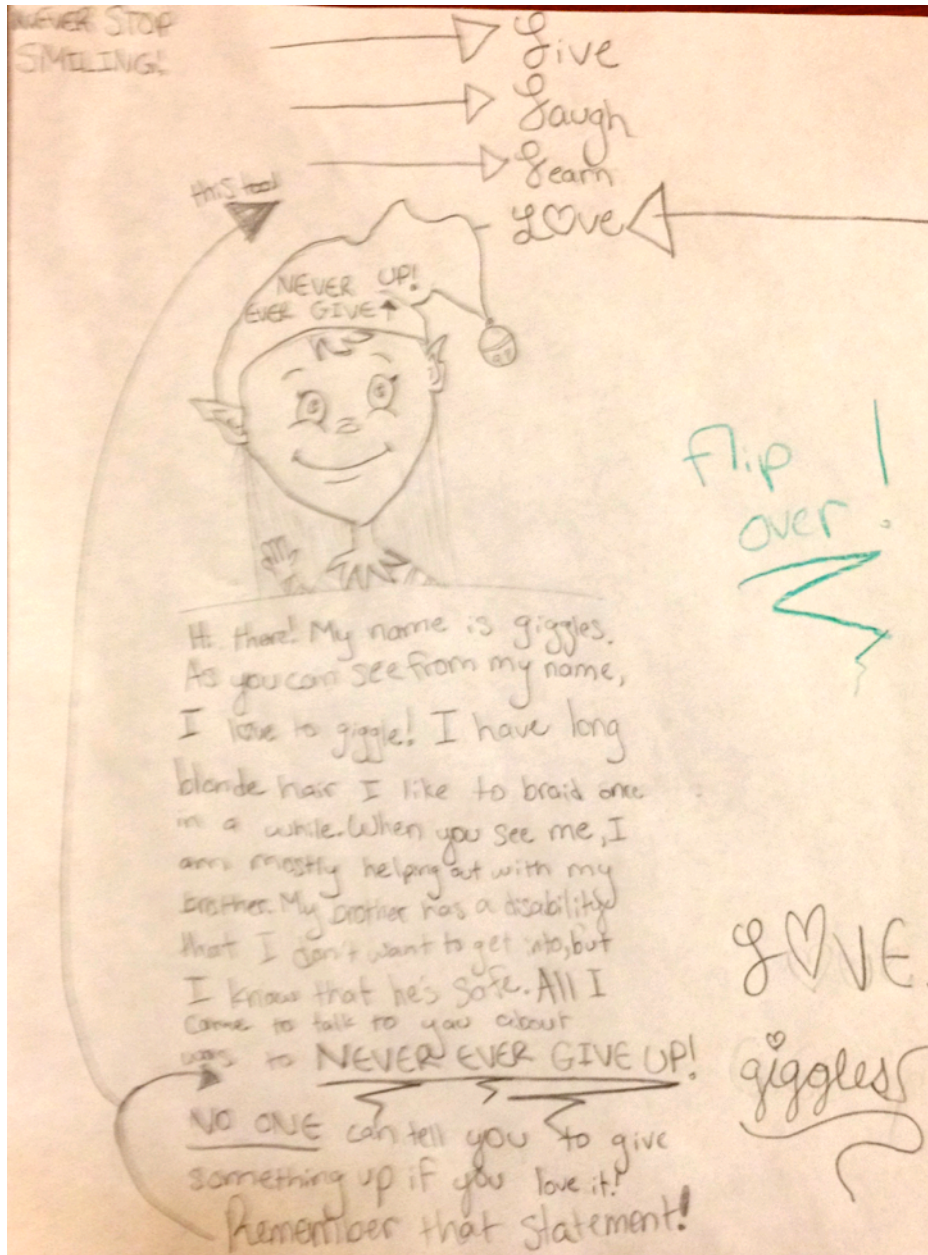 NEVER STOP
SMILING!
Live
Laugh
Learn
this too!
LOVE
NEVER UP!
EVER GIVE
flip !
over
Hi there! My name is giggles.
As you can see from my name,
I love to giggle! I have long
blonde hair I like to braid once
in a while. When you see me, I
am mostly helping out with my
brother. My brother has a disability
that I don't want to get into, but
I know that he's safe. All I
came to talk to you about
was to NEVER EVER GIVE UP!
NO ONE can tell you to give
something up if you love it!
Remember that statement!
LOVE,
giggles